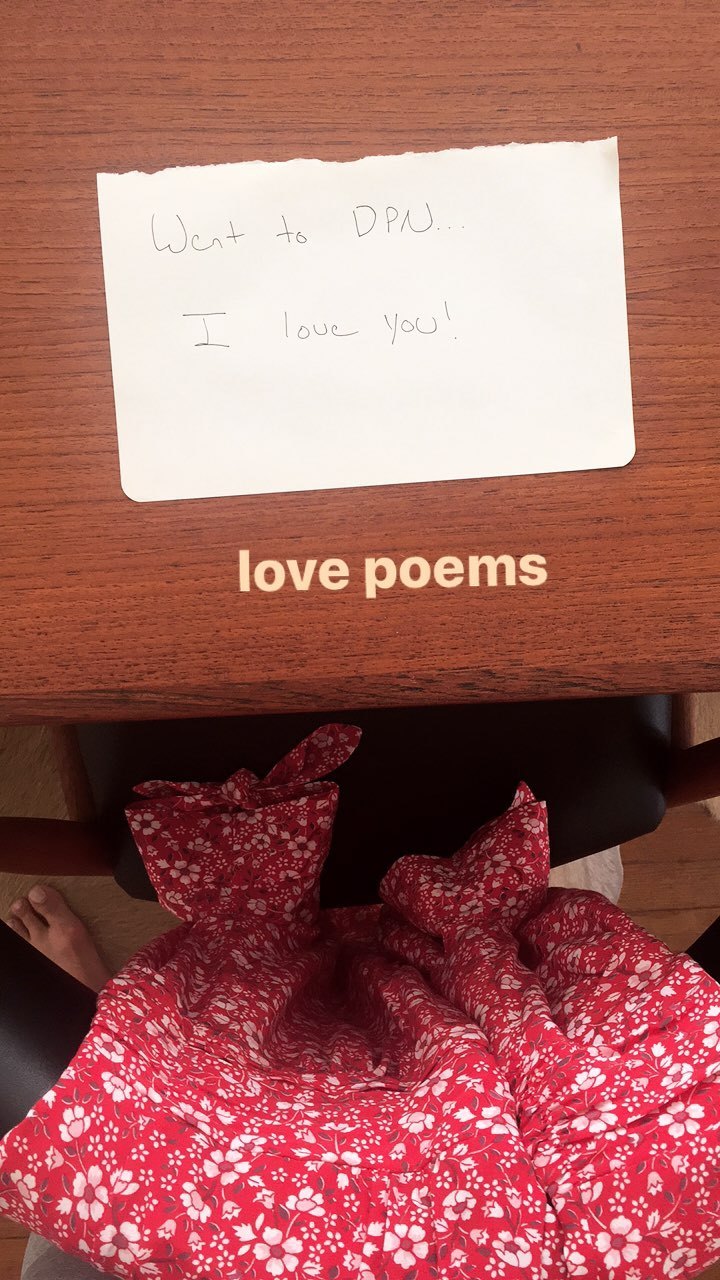 Went to DPN...
I love you!
love poems